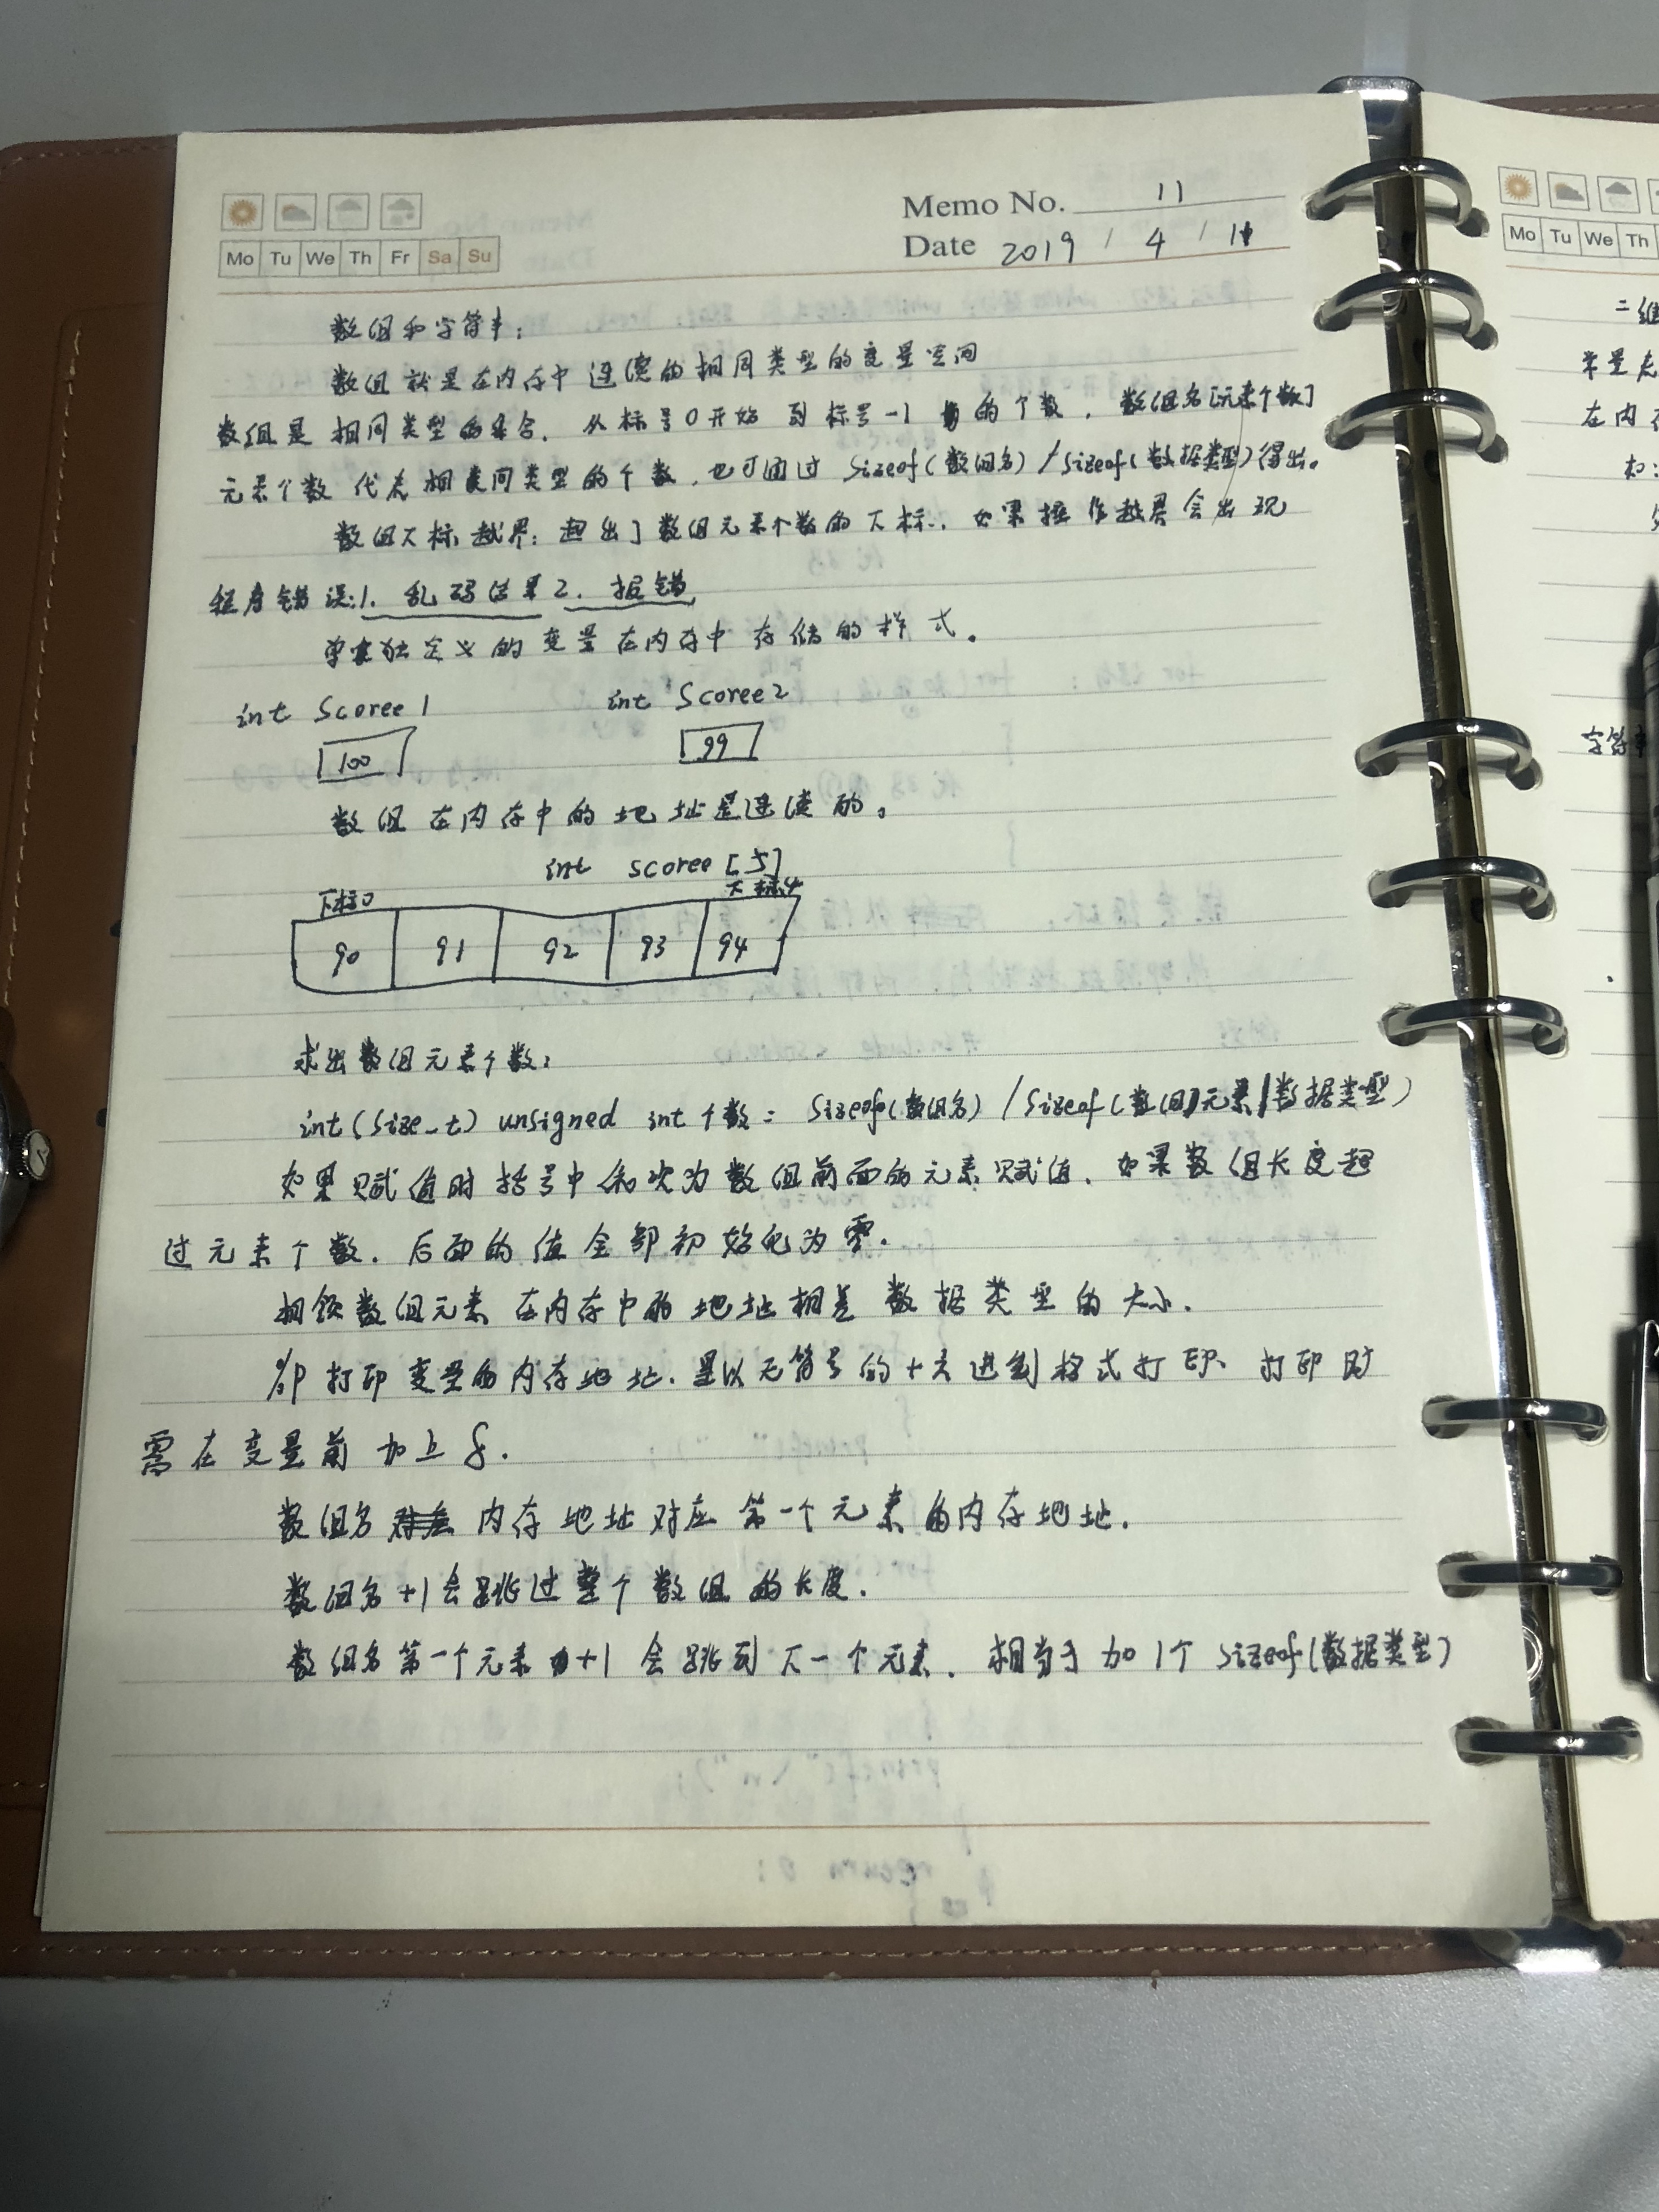 Memo No. 11
Mo Tu We Th Fr Sa Su
Date 2019 / 4 / 11
数组和字符串:
数组就是在内存中连续的相同类型的变量空间
数组是相同类型的集合. 从标号0开始 到 标号-1 的个数. 数组名[元素个数]
元素个数 代表相同类型的个数, 也可通过 sizeof(数组名)/sizeof(数据类型)得出。
数组下标越界: 超出了数组元素个数的下标. 如果操作越界会出现
程序错误:1. 乱码结果2. 报错
单独定义的变量在内存中存储的样式。
int Scoree1 int Scoree2
100 99
数组在内存中的地址是连续的。
int scoree[5]
下标0 下标4
90 91 92 93 94
求出数组元素个数:
int(size_t) unsigned int 个数 = Sizeof(数组名)/Sizeof(数组元素/数据类型)
如果赋值时括号中依次为数组前面的元素赋值. 如果数组长度超
过元素个数. 后面的值全部初始化为零.
相邻数组元素在内存中的地址相差数据类型的大小.
%P打印变量的内存地址. 是以无符号的十六进制格式打印. 打印时
需在变量前加上&.
数组名 内存地址对应第一个元素的内存地址.
数组名+1会跳过整个数组的长度.
数组名第一个元素+1会跳到下一个元素. 相当于加1个Sizeof(数据类型)
Mo Tu We Th
二维
常量
左内
字符串